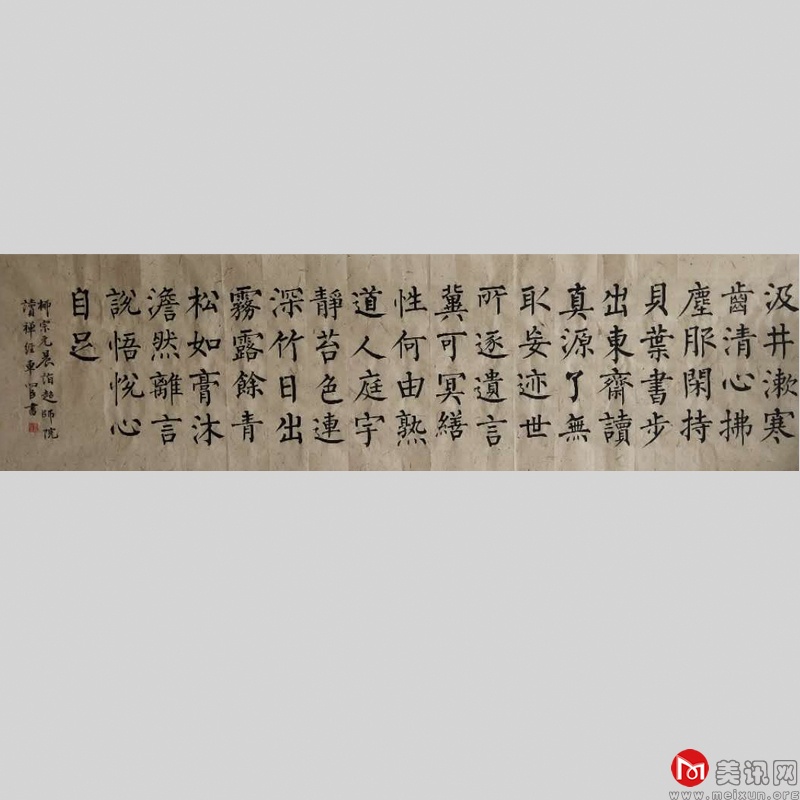 汲井漱寒
齒清心拂
塵服閑持
貝葉書步
出東齋讀
真源了無
取妄迹世
所逐遺言
冀可冥繕
性何由熟
道人庭宇
靜苔色連
深竹日出
霧露餘青
松如膏沐
澹然離言
說悟悅心
自足
柳宗元晨詣超師院
讀禅經書
美讯网
www.meixun.org